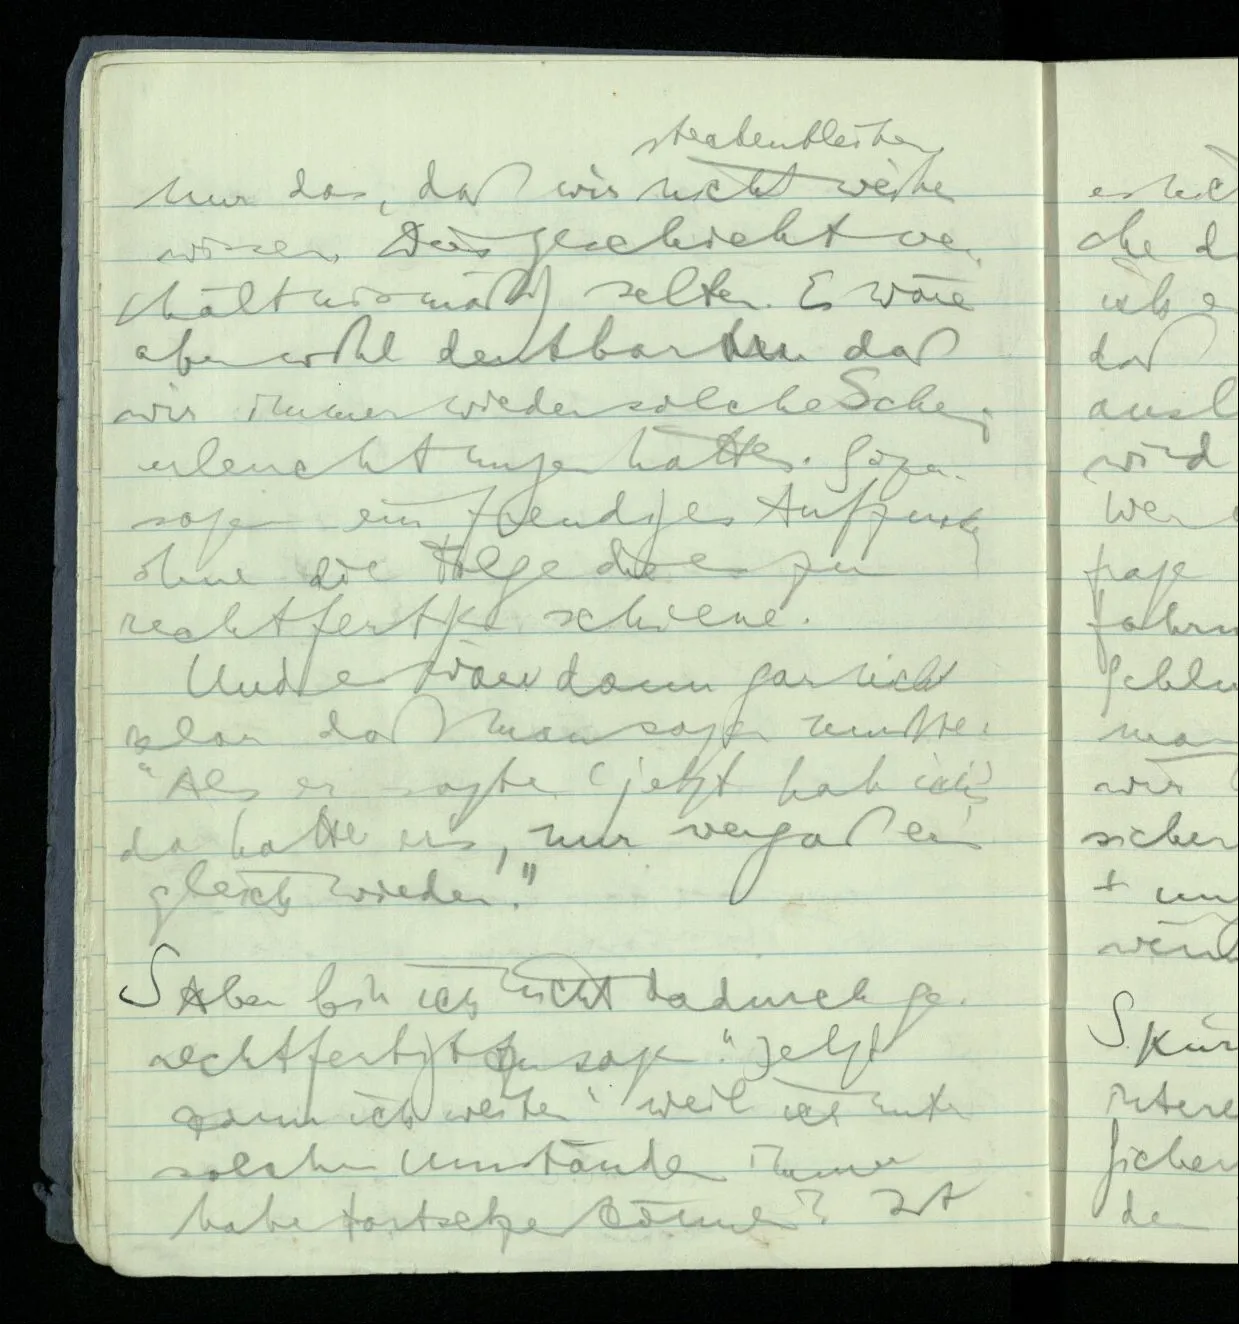 steckenbleiben
nur das, daß wir nicht weiter
wissen. Das geschieht ver-
hältnismäßig selten. Es wäre
aber wohl denkbar daß
wir immer wieder solche Schein-
erleuchtungen hätten. Sozu-
sagen ein freudiges Aufzucken
ohne die Folge die es zu
rechtfertigen schiene.
Und es wäre dann gar nicht
klar daß man sagen müßte:
"Als er sagte 'jetzt hab ich's'
da hatte er's, nur vergaß er's
gleich wieder."
S Aber bin ich nicht dadurch ge-
rechtfertigt zu sagen "jetzt
kann ich weiter" weil ich unter
solchen Umständen immer
habe fortsetzen können? Ist
es nich
che d
ich e
daß
ausl
wird
Wer
frage
fahr
man
wir
sicher
+ un
S Kön
intere
sicher
den